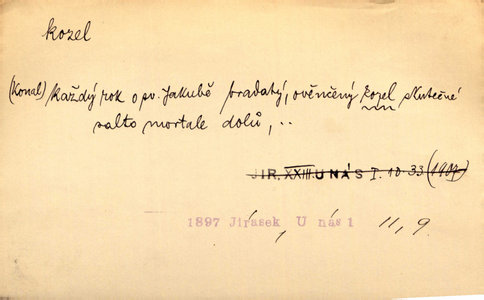 kozel
(Konal) každý rok o sv. Jakubě bradatý, ověnčený kozel skutečné
salto mortale dolů, ..
JIR. XXIII. U NÁS I. 10.33 (1904)
1897 Jirásek, U nás 1 11, 9.